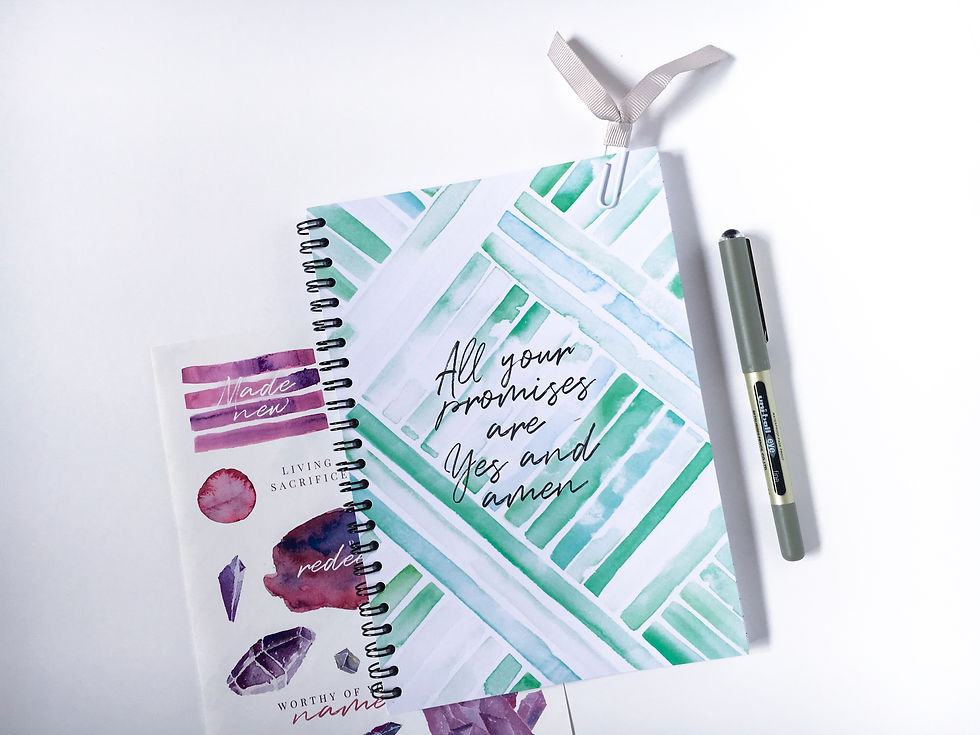 All your
promises
are
Yes and
amen
Made
new
LIVING
SACRIFICE
WORTHY OF
name
uniball eye
fine